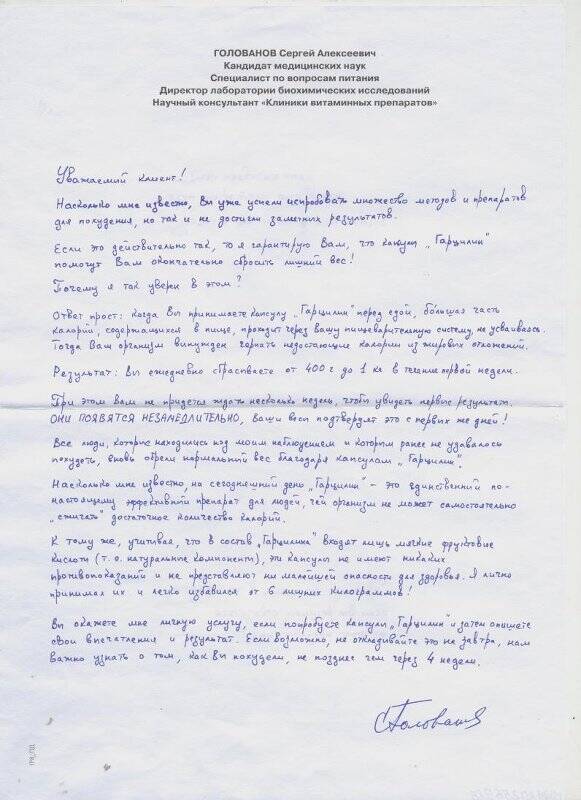 ГОЛОВАНОВ Сергей Алексеевич
Кандидат медицинских наук
Специалист по вопросам питания
Директор лаборатории биохимических исследований
Научный консультант «Клиники витаминных препаратов»
Уважаемый клиент!
Насколько мне известно, Вы уже успели испробовать множество методов и препаратов
для похудения, но так и не достигли заметных результатов.
Если это действительно так, то я гарантирую Вам, что капсулы „Гарцилин"
помогут Вам окончательно сбросить лишний вес!
Почему я так уверен в этом?
Ответ прост: когда Вы принимаете капсулу „Гарцилин" перед едой, бо́льшая часть
калорий, содержащихся в пище, проходит через вашу пищеварительную систему, не усваиваясь.
Тогда Ваш организм вынужден черпать недостающие калории из жировых отложений.
Результат: Вы ежедневно сбрасываете от 400 г до 1 кг в течение первой недели.
При этом Вам не придется ждать несколько недель, чтобы увидеть первые результаты.
ОНИ ПОЯВЯТСЯ НЕЗАМЕДЛИТЕЛЬНО, Ваши весы подтвердят это с первых же дней!
Все люди, которые находились под моим наблюдением и которым ранее не удавалось
похудеть, вновь обрели нормальный вес благодаря капсулам „Гарцилин".
Насколько мне известно, на сегодняшний день „Гарцилин" - это единственный по-
настоящему эффективный препарат для людей, чей организм не может самостоятельно
„сжигать" достаточное количество калорий.
К тому же, учитывая, что в состав „Гарцилина" входят лишь мягкие фруктовые
кислоты (т.е. натуральные компоненты), эти капсулы не имеют никаких
противопоказаний и не представляют ни малейшей опасности для здоровья. Я лично
принимал их и легко избавился от 6 лишних килограммов!
Вы окажете мне личную услугу, если попробуете капсулы „Гарцилин" и затем опишете
свои впечатления и результат. Если возможно, не откладывайте это на завтра, нам
важно узнать о том, как Вы похудели, не позднее чем через 4 недели.
СГолованов